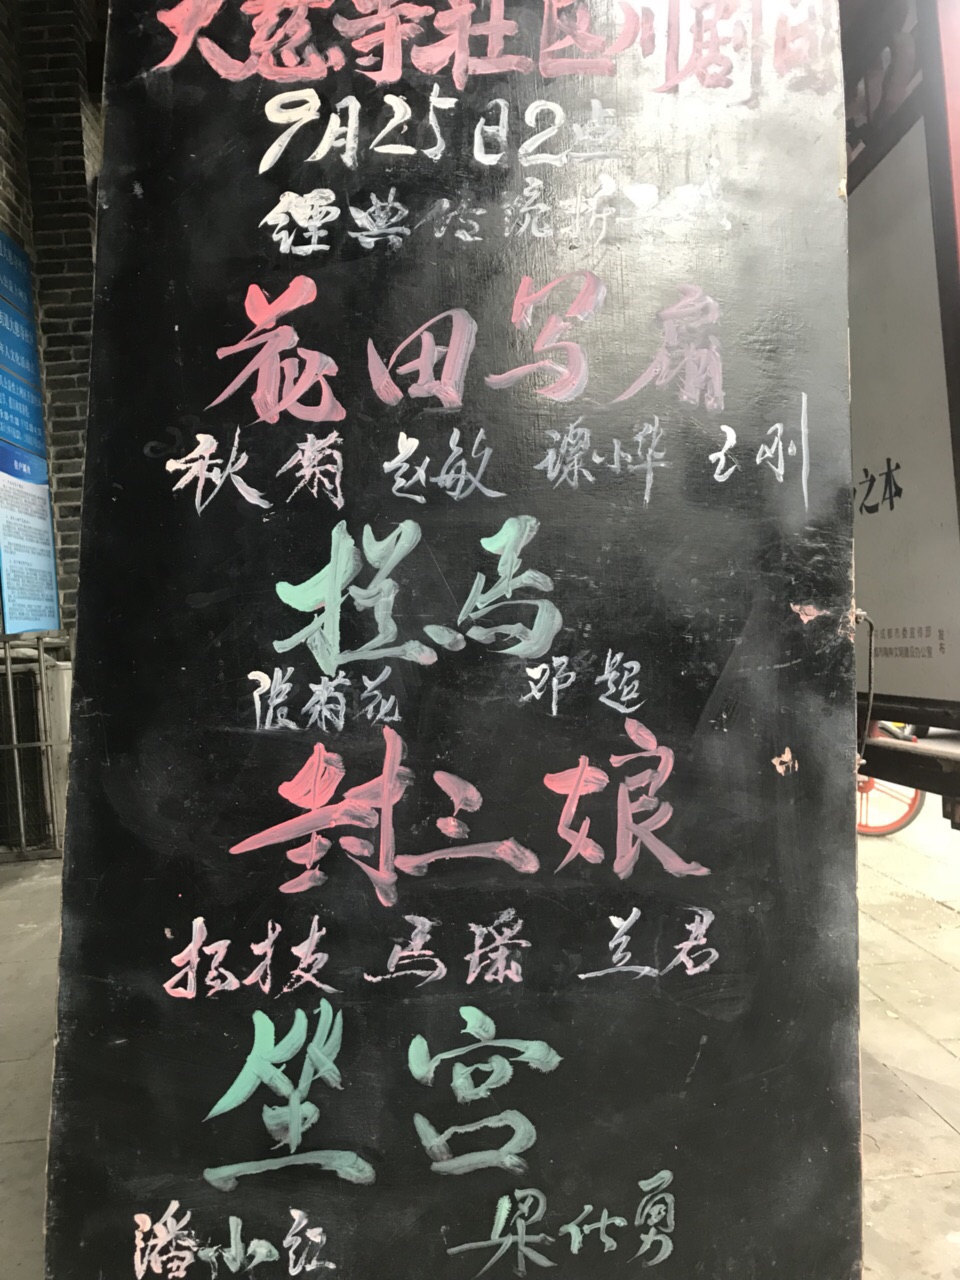 大慈寺社区川剧
9月25日2点
经典传统折
花田写扇
秋菊 赵敏 谭小华 王刚
拦马
张菊花 邓超
封三娘
马瑶 兰君
坐宫
潘小红 梁仕勇
之本